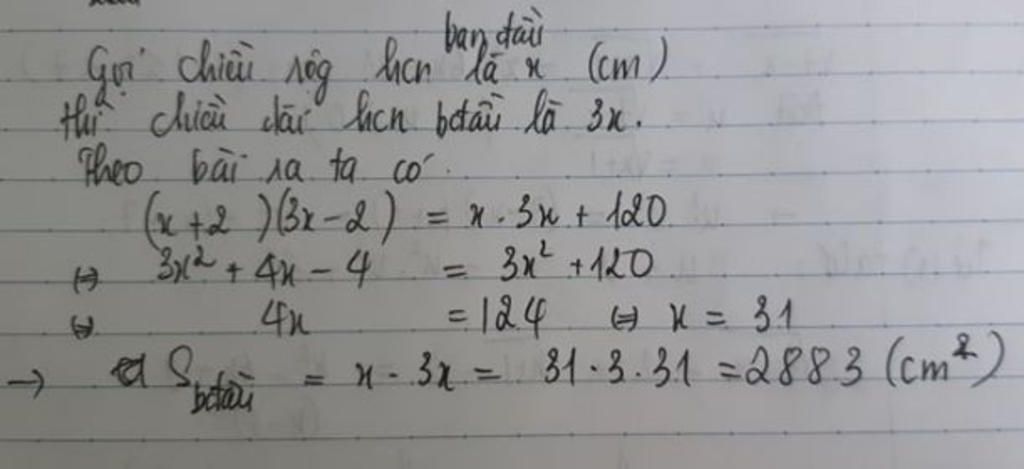 ban đầu
Gọi chiều rộg hcn là x (cm)
thì chiều dài hcn bđầu là 3x.
Theo bài ra ta có
(x+2)(3x-2) = x·3x + 120
⇔ 3x² + 4x - 4 = 3x² + 120
⇔ 4x = 124 ⇔ x = 31
→ S bđầu = x·3x = 31·3·31 = 2883 (cm²)